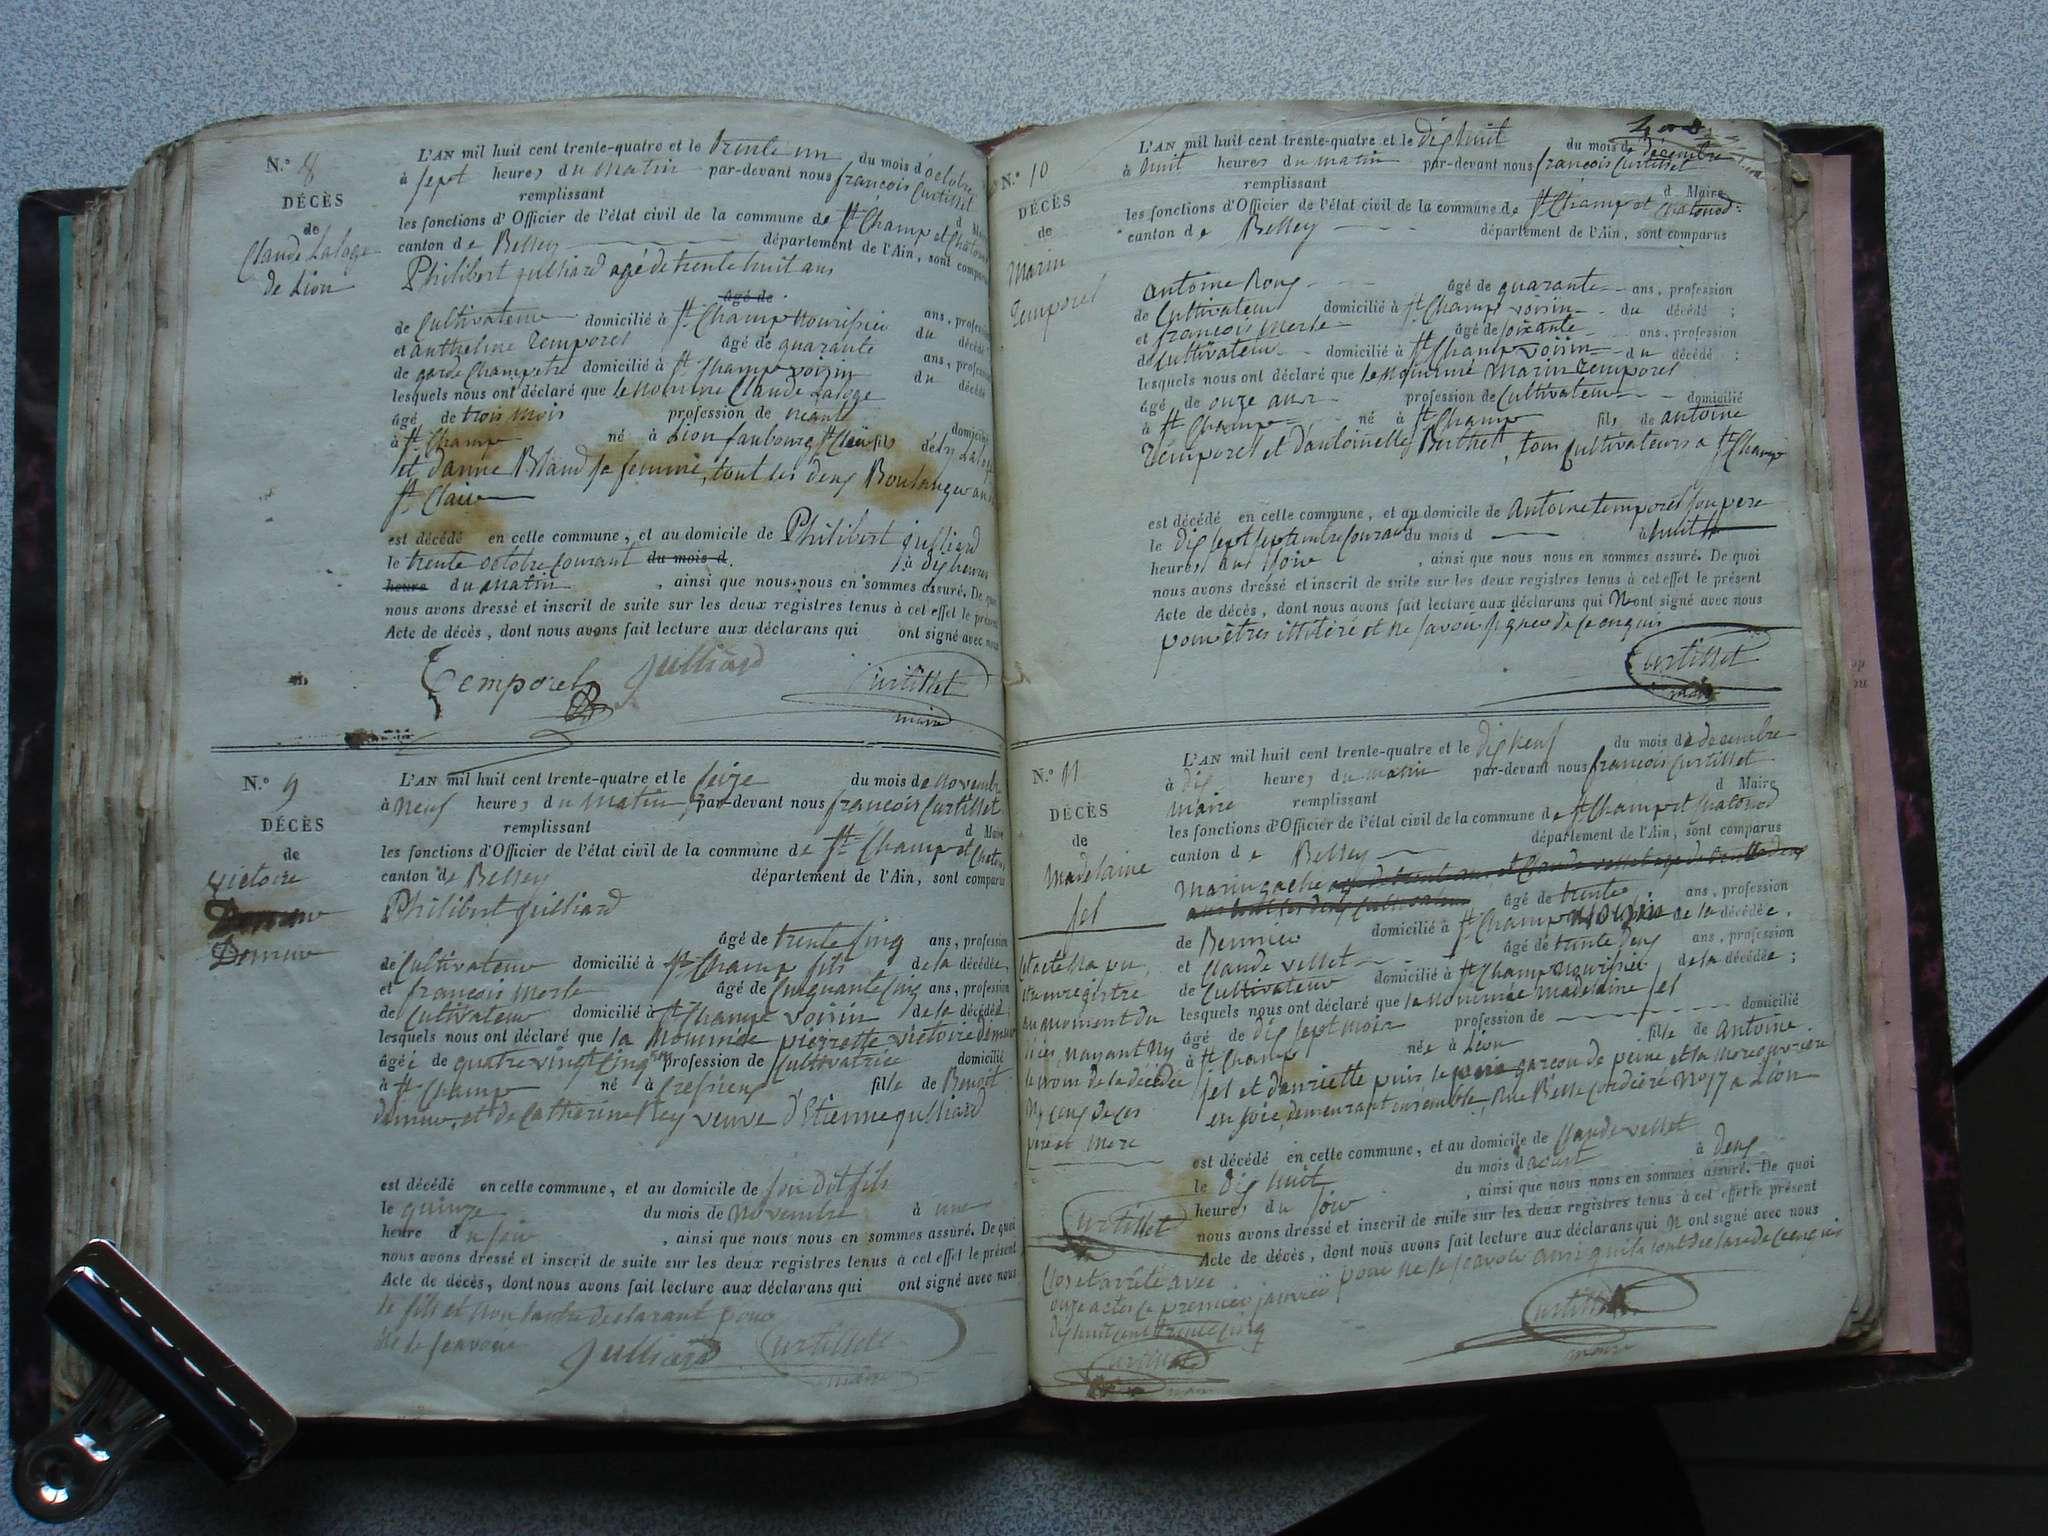 N.º 8
DÉCÈS
de
Claude Laloge
de Lion
L'AN mil huit cent trente-quatre et le trente un du mois d'octobre
à sept heures du matin par-devant nous françois Curtillet
remplissant d Maire
les fonctions d'Officier de l'état civil de la commune de St Champ et Chatonod
canton de Belley département de l'Ain, sont comparus
Philibert julliard agé de trente huit ans
âgé de
de Cultivateur domicilié à St Champ nourisier du décédé
ans, profession
et anthelme Temporel âgé de quarante
de garde Champetre domicilié à St Champ voisin du décédé
ans, profession
lesquels nous ont déclaré que le nommé Claude Laloge
âgé de trois mois profession de néant
à St Champ né à Lion faubourg St Clair fils de Laloge
domicilié
et d'anne Bland sa femme, tout les deux Boulanger au
St Clair
est décédé en cette commune, et au domicile de Philibert julliard
le trente octobre courant du mois d à dix heures
heure du matin, ainsi que nous nous en sommes assuré. De quoi
nous avons dressé et inscrit de suite sur les deux registres tenus à cet effet le présent
Acte de décès, dont nous avons fait lecture aux déclarans qui ont signé avec nous
Temporel Julliard Curtillet
maire
N.º 9
DÉCÈS
de
Victoire
Demeur
L'AN mil huit cent trente-quatre et le seize du mois de novembre
à neuf heures du matin, par-devant nous françois Curtillet
remplissant d Maire
les fonctions d'Officier de l'état civil de la commune de St Champ et Chatonod
canton de Belley département de l'Ain, sont comparus
Philibert julliard
âgé de trente cinq ans, profession
de Cultivateur domicilié à St Champ fils de la décédée,
et françois merle âgé de Cinquante Cinq ans, profession
de Cultivateur domicilié à St Champ voisin de la décédée
lesquels nous ont déclaré que la nommée pierrette victoire demeur
âgée de quatre vingt cinq ans profession de Cultivatrice domicilié
à St Champ né à Cresieu fille de Benoit
demeur et de Catherine Rey veuve d'Etienne julliard
est décédé en cette commune, et au domicile de son dit fils
le quinze du mois de novembre à une
heure du soir, ainsi que nous nous en sommes assuré. De quoi
nous avons dressé et inscrit de suite sur les deux registres tenus à cet effet le présent
Acte de décès, dont nous avons fait lecture aux déclarans qui ont signé avec nous
le fils et non lautre declarant pour
ne le scavoir
Julliard Curtillet
maire
N.º 10
DÉCÈS
de
Marin
Temporel
L'AN mil huit cent trente-quatre et le dix huit du mois de décembre
à huit heures du matin par-devant nous françois Curtillet
remplissant d Maire
les fonctions d'Officier de l'état civil de la commune de St Champ et Chatonod
canton de Belley département de l'Ain, sont comparus
antoine Roux âgé de quarante ans, profession
de Cultivateur domicilié à St Champ voisin du décédé;
et françois merle âgé de soixante ans, profession
de Cultivateur domicilié à St Champ voisin du décédé;
lesquels nous ont déclaré que le nommé Marin Temporel
âgé de onze ans profession de Cultivateur domicilié
à St Champ né à St Champ fils de antoine
Temporel et d'antoinette Berthet, tous Cultivateurs a St Champ
est décédé en cette commune, et au domicile de Antoine temporel son pere
le dix sept septembre courant du mois d à huit
heures du soir, ainsi que nous nous en sommes assuré. De quoi
nous avons dressé et inscrit de suite sur les deux registres tenus à cet effet le présent
Acte de décès, dont nous avons fait lecture aux déclarans qui N'ont signé avec nous
pour êtres illitéré et ne savoir signer de ce enquis
Curtillet
maire
N.º 11
DÉCÈS
de
Madelaine
fel
L'AN mil huit cent trente-quatre et le dix neuf du mois de decembre
à dix heures du matin par-devant nous françois Curtillet
maire remplissant d Maire
les fonctions d'Officier de l'état civil de la commune de St Champ et Chatonod
canton de Belley département de l'Ain, sont comparus
Marin gache
âgé de trente ans, profession
de Bennier domicilié à St Champ voisin de la décédée,
et Claude vellet âgé de trente deux ans, profession
de Cultivateur domicilié à St Champ nourisier de la décédée;
lesquels nous ont déclaré que la nommée Madelaine fel
âgé de dix sept mois profession de domicilié
à St Champ née à Lion fille de Antoine
fel et d'anriette puis le pere garcon de peine et la mere ouvriere
en soie, demeurant ensemble, Rue Belle Cordiere No 17 a Lion
est décédé en cette commune, et au domicile de Claude vellet
le dix huit du mois d'aout à deux
heures du soir, ainsi que nous nous en sommes assuré. De quoi
nous avons dressé et inscrit de suite sur les deux registres tenus à cet effet le présent
Acte de décès, dont nous avons fait lecture aux déclarans qui N'ont signé avec nous
pour ne le scavoir ainsi quils l'ont declaré de ce enquis
Curtillet
maire
Cet acte na pu
etre enregistré
au moment du
déces, nayant ny
le nom de la décédée
ny ceux de ces
pere et mere
Curtillet
Clos et arrêté avec
onze actes le premier janvier
dix huit cent trente cinq
Curtillet
maire